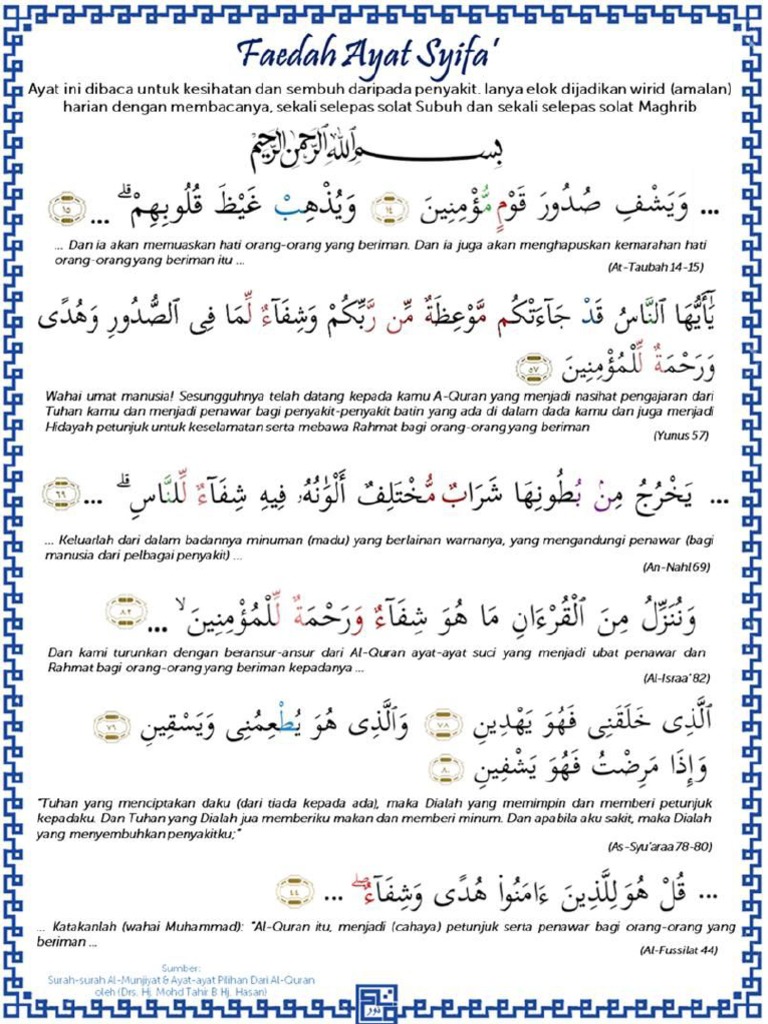 Faedah Ayat Syifa'
Ayat ini dibaca untuk kesihatan dan sembuh daripada penyakit. Ianya elok dijadikan wirid (amalan)
harian dengan membacanya, sekali selepas solat Subuh dan sekali selepas solat Maghrib
بِسْمِ ٱللَّهِ ٱلرَّحْمَٰنِ ٱلرَّحِيمِ
... وَيَشْفِ صُدُورَ قَوْمٍ مُّؤْمِنِينَ ١٤ وَيُذْهِبْ غَيْظَ قُلُوبِهِمْ ۗ ... ١٥
... Dan ia akan memuaskan hati orang-orang yang beriman. Dan ia juga akan menghapuskan kemarahan hati
orang-orang yang beriman itu ...
(At-Taubah 14-15)
يَٰٓأَيُّهَا ٱلنَّاسُ قَدْ جَآءَتْكُم مَّوْعِظَةٌ مِّن رَّبِّكُمْ وَشِفَآءٌ لِّمَا فِى ٱلصُّدُورِ وَهُدًى
وَرَحْمَةٌ لِّلْمُؤْمِنِينَ ٥٧
Wahai umat manusia! Sesungguhnya telah datang kepada kamu A-Quran yang menjadi nasihat pengajaran dari
Tuhan kamu dan menjadi penawar bagi penyakit-penyakit batin yang ada di dalam dada kamu dan juga menjadi
Hidayah petunjuk untuk keselamatan serta mebawa Rahmat bagi orang-orang yang beriman
(Yunus 57)
... يَخْرُجُ مِنۢ بُطُونِهَا شَرَابٌ مُّخْتَلِفٌ أَلْوَٰنُهُۥ فِيهِ شِفَآءٌ لِّلنَّاسِ ۗ ... ٦٩
... Keluarlah dari dalam badannya minuman (madu) yang berlainan warnanya, yang mengandungi penawar (bagi
manusia dari pelbagai penyakit) ...
(An-Nahl 69)
وَنُنَزِّلُ مِنَ ٱلْقُرْءَانِ مَا هُوَ شِفَآءٌ وَرَحْمَةٌ لِّلْمُؤْمِنِينَ ۙ ... ٨٢
Dan kami turunkan dengan beransur-ansur dari Al-Quran ayat-ayat suci yang menjadi ubat penawar dan
Rahmat bagi orang-orang yang beriman kepadanya ...
(Al-Israa' 82)
ٱلَّذِى خَلَقَنِى فَهُوَ يَهْدِينِ ٧٨ وَٱلَّذِى هُوَ يُطْعِمُنِى وَيَسْقِينِ ٧٩
وَإِذَا مَرِضْتُ فَهُوَ يَشْفِينِ ٨٠
"Tuhan yang menciptakan daku (dari tiada kepada ada), maka Dialah yang memimpin dan memberi petunjuk
kepadaku. Dan Tuhan yang Dialah jua memberiku makan dan memberi minum. Dan apabila aku sakit, maka Dialah
yang menyembuhkan penyakitku;"
(As-Syu'araa 78-80)
... قُلْ هُوَ لِلَّذِينَ ءَامَنُوا۟ هُدًى وَشِفَآءٌ ۖ ... ٤٤
... Katakanlah (wahai Muhammad): "Al-Quran itu, menjadi (cahaya) petunjuk serta penawar bagi orang-orang yang
beriman ...
(Al-Fussilat 44)
Sumber:
Surah-surah Al-Munjiyat & Ayat-ayat Pilihan Dari Al-Quran
oleh (Drs. Hj. Mohd Tahir B Hj. Hasan)